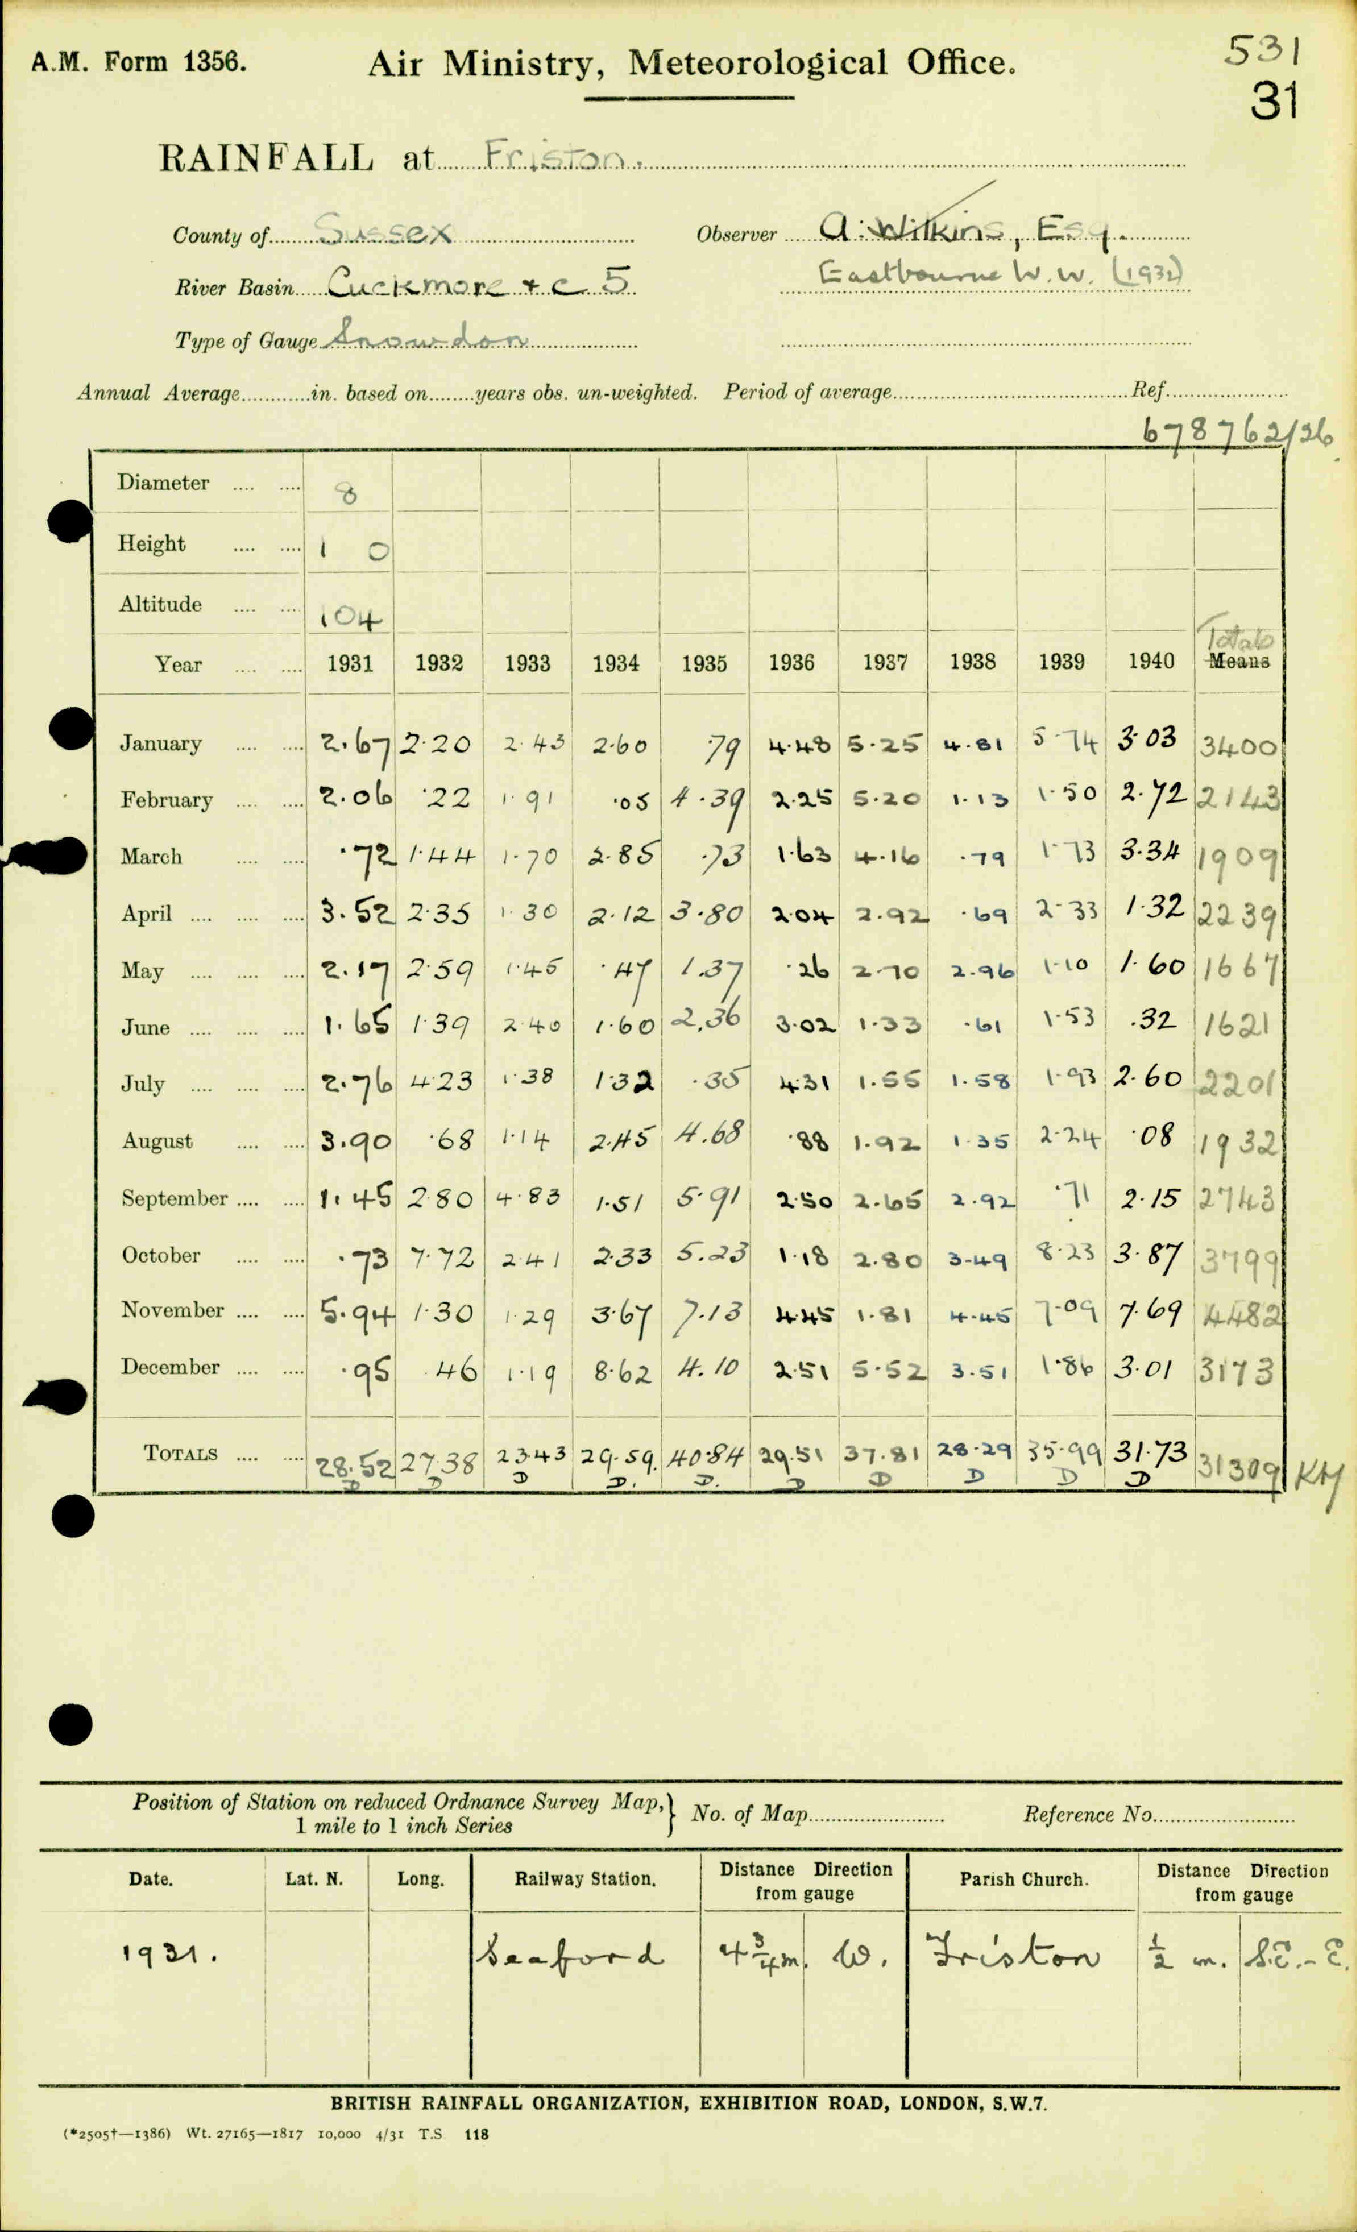 A.M. Form 1356. Air Ministry, Meteorological Office. 531
31
RAINFALL at Friston.
County of Sussex Observer A. Wilkins, Esq.
River Basin Cuckmere + c 5 Eastbourne W.W. (1932)
Type of Gauge Snowdon
Annual Average in. based on years obs. un-weighted. Period of average Ref.
678762/26
Diameter 8
Height 1 0
Altitude 104
Totals
Year 1931 1932 1933 1934 1935 1936 1937 1938 1939 1940 Means
January 2.67 2.20 2.43 2.60 .79 4.48 5.25 4.81 5.74 3.03 3400
February 2.06 .22 1.91 .05 4.39 2.25 5.20 1.13 1.50 2.72 2143
March .72 1.44 1.70 2.85 .73 1.63 4.16 .79 1.73 3.34 1909
April 3.52 2.35 1.30 2.12 3.80 2.04 2.92 .69 2.33 1.32 2239
May 2.17 2.59 1.45 .47 1.37 .26 2.70 2.96 1.10 1.60 1667
June 1.65 1.39 2.40 1.60 2.36 3.02 1.33 .61 1.53 .32 1621
July 2.76 4.23 1.38 1.32 .35 4.31 1.55 1.58 1.93 2.60 2201
August 3.90 .68 1.14 2.45 4.68 .88 1.92 1.35 2.24 .08 1932
September 1.45 2.80 4.83 1.51 5.91 2.50 2.65 2.92 .71 2.15 2743
October .73 7.72 2.41 2.33 5.23 1.18 2.80 3.49 8.23 3.87 3799
November 5.94 1.30 1.29 3.67 7.13 4.45 1.81 4.45 7.09 7.69 4482
December .95 .46 1.19 8.62 4.10 2.51 5.52 3.51 1.86 3.01 3173
TOTALS 28.52 27.38 23.43 29.59. 40.84 29.51 37.81 28.29 35.99 31.73 31309 KH
D D D D. D. D D D D D
Position of Station on reduced Ordnance Survey Map, } No. of Map Reference No.
1 mile to 1 inch Series
Date. Lat. N. Long. Railway Station. Distance Direction from gauge Parish Church. Distance Direction from gauge
1931. Seaford 4 3/4 m. W. Friston 1/2 m. S.E.-E.
BRITISH RAINFALL ORGANIZATION, EXHIBITION ROAD, LONDON, S.W.7.
(*2505†—1386) Wt. 27165—1817 10,000 4/31 T.S 118